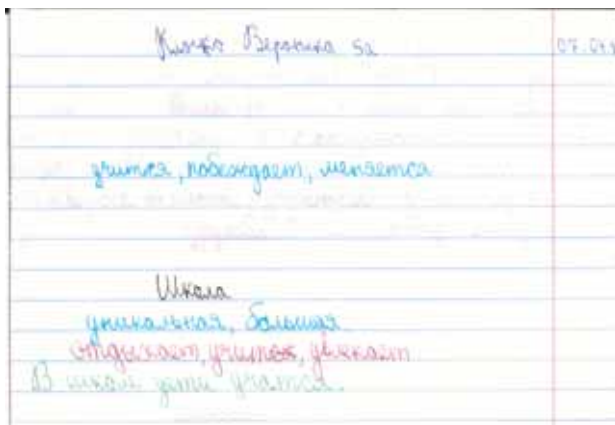 Вероника 5а
07.04
учится, побеждает, меняется
Школа
уникальная, большая
отдыхает, учится,
В школе дети учатся.